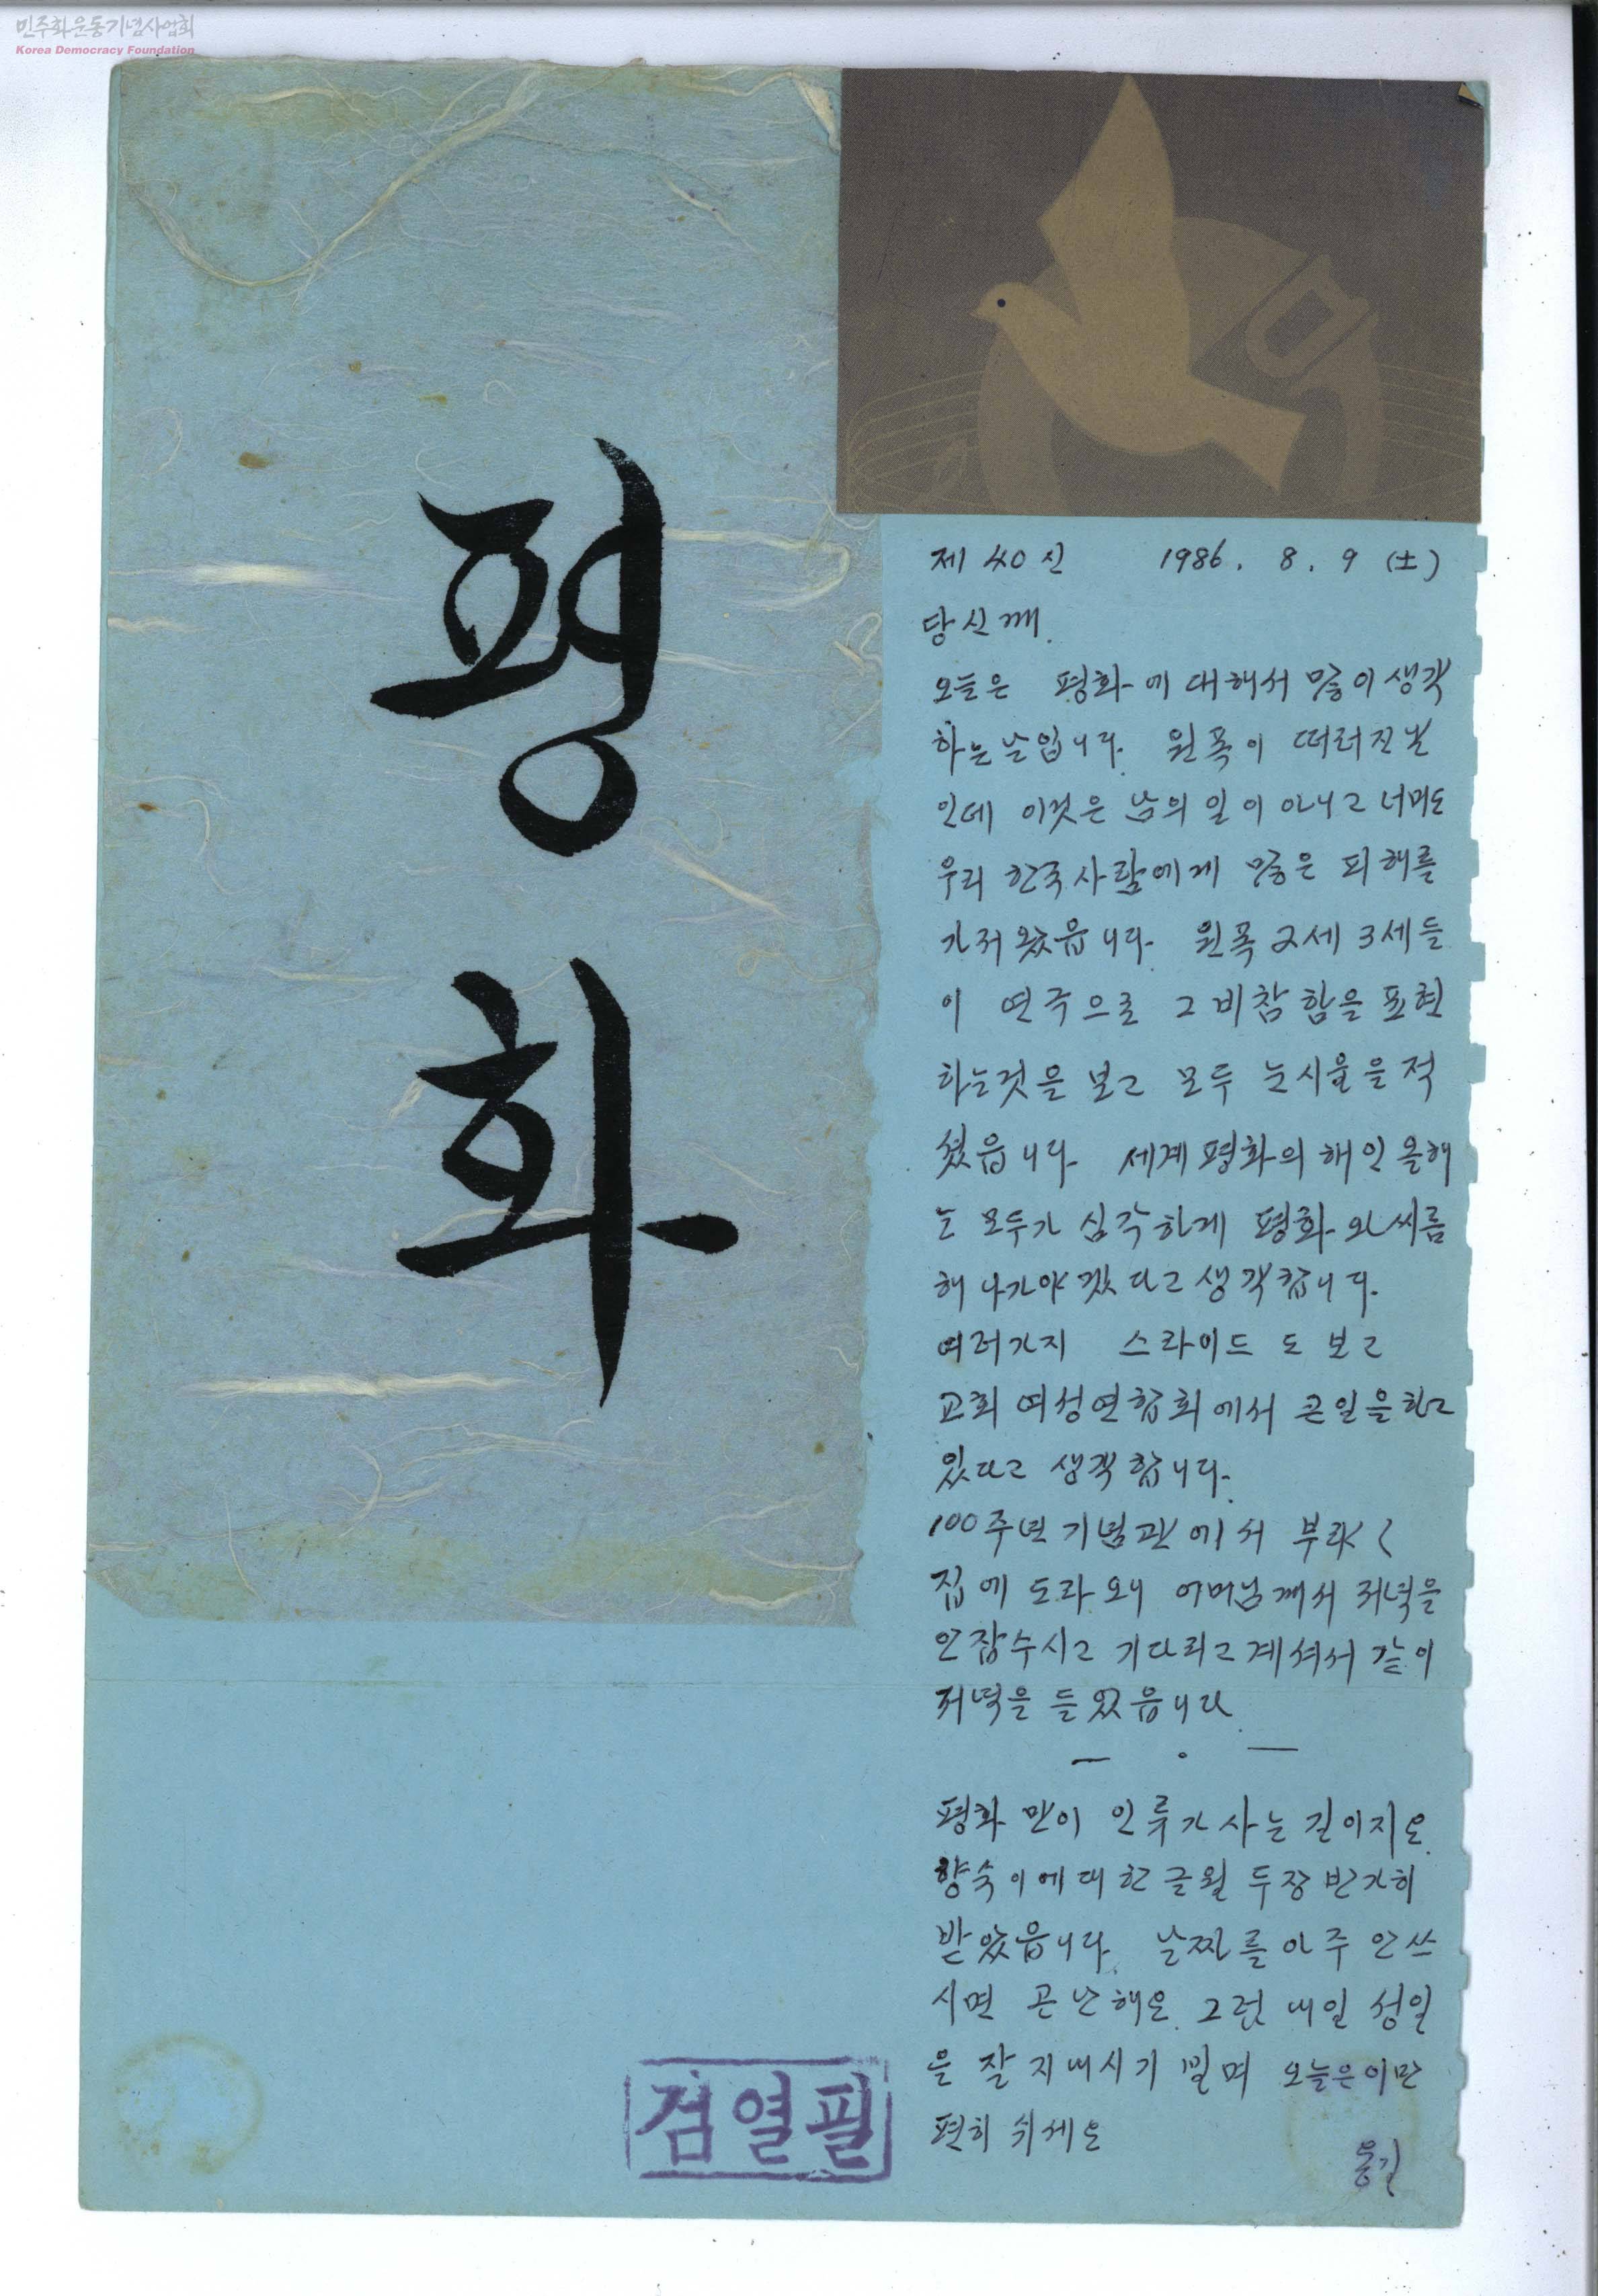 민주화운동기념사업회
Korea Democracy Foundation
평
화
제 40 신 1986. 8. 9 (土)
당신께.
오늘은 평화에 대해서 많이 생각
하는 날입니다. 원폭이 떠러진 날
인데 이것은 남의 일이 아니고 너머도
우리 한국사람에게 많은 피해를
가저왔읍니다. 원폭 2세 3세들
이 연극으로 그 비참함을 표현
하는것을 보고 모두 눈시울을 적
셨읍니다. 세계 평화의 해인 올해
는 모두가 심각하게 평화와 씨름
해 나가야 겠다고 생각합니다.
여러가지 스라이드도 보고
교회 여성연합회에서 큰일을 하고
있다고 생각합니다.
100주년 기념관에서 부랴
집에 도라오니 어머님께서 저녁을
안잡수시고 기다리고 계셔서 같이
저녁을 들었읍니다.
— . —
평화 만이 인류가 사는 길이지요.
향숙이에 대한 글월 두장 반가히
받았읍니다. 날짜를 아주 안쓰
시면 곤난해요. 그럼 내일 성일
을 잘 지내시기 빌며 오늘은 이만
편히 쉬세요
용길
검열필